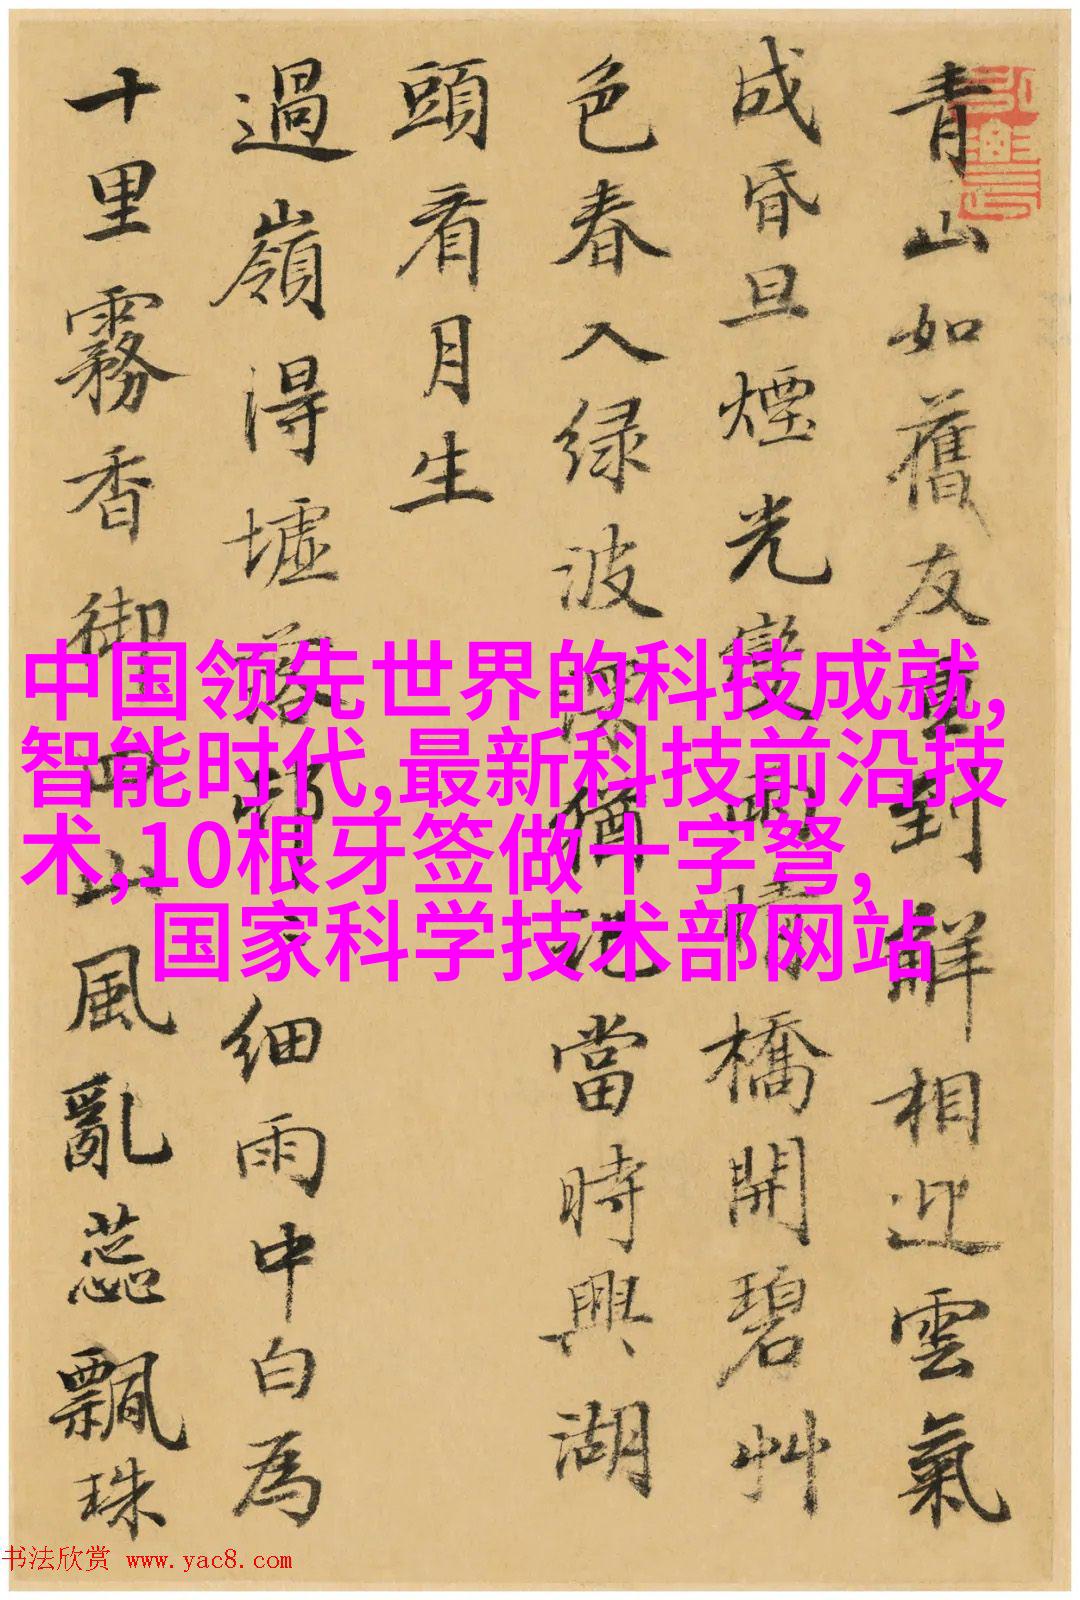 青山如舊友重到解相迎雲氣
成昏旦煙光變雨晴橋開碧艸
色春入绿波猶記當時興湖
頭看月生
過嶺得墟落邨〻細雨中白為
十里霧香御四山風亂蕊飄珠
中国领先世界的科技成就,
智能时代,最新科技前沿技
术,10根牙签做十字弩,
国家科学技术部网站
书法欣赏 www.yac8.com